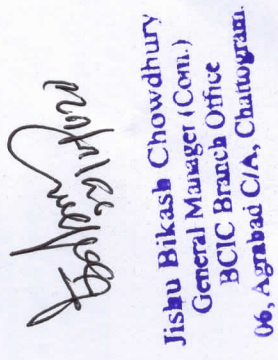 Jishu Bikash Chowdhury
General Manager (Com.)
BCIC Branch Office
06, Agrabad C/A, Chattogram.